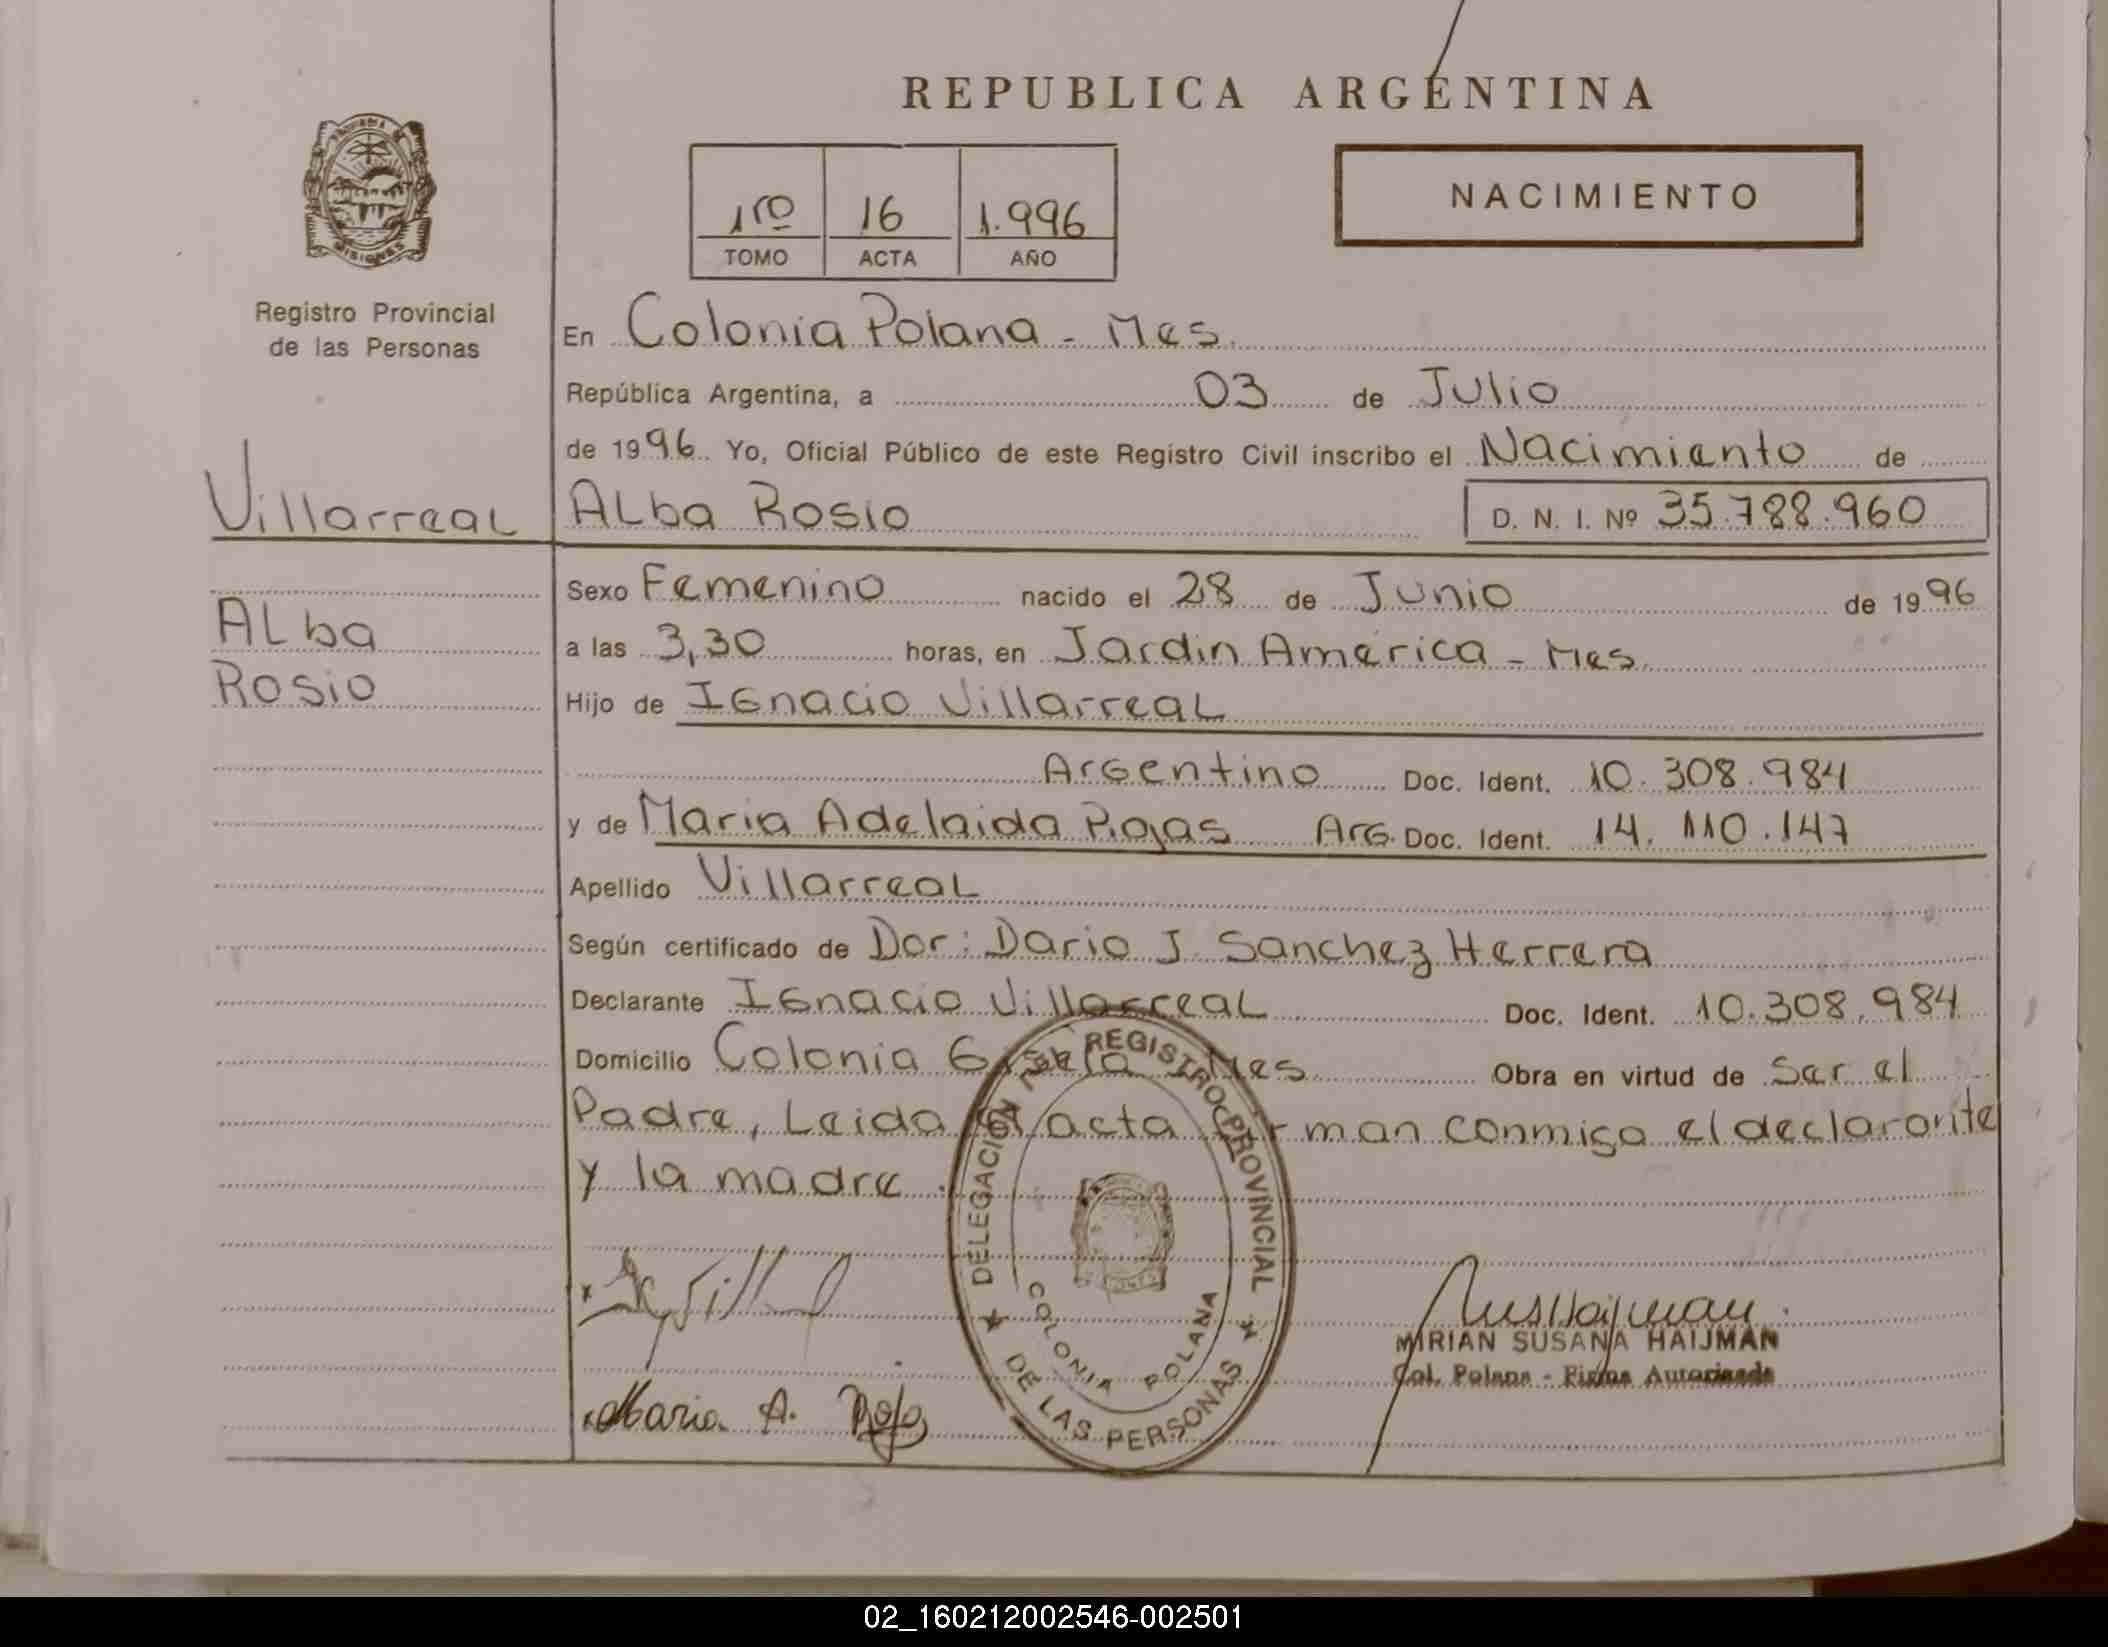 REPUBLICA ARGENTINA
PROVINCIA DE
MISIONES
Registro Provincial
de las Personas
1ro 16 1.996
TOMO ACTA AÑO
NACIMIENTO
En Colonia Polana - Mes.
República Argentina, a 03 de Julio
de 1996. Yo, Oficial Público de este Registro Civil inscribo el Nacimiento de
Villarreal ALba Rosio D. N. I. Nº 35.788.960
Sexo Femenino nacido el 28 de Junio de 1996
ALba
a las 3,30 horas, en Jardin América - Mes.
Rosio
Hijo de IGnacio Villarreal
Argentino Doc. Ident. 10.308.984
y de Maria Adelaida Rojas Arg. Doc. Ident. 14.110.147
Apellido Villarreal
Según certificado de Dor: Dario J. Sanchez Herrera
Declarante IGnacio Villarreal Doc. Ident. 10.308.984
Domicilio Colonia Gisela - Mes Obra en virtud de Ser el
Padre, Leida el acta firman conmigo el declarante
y la madre.
DELEGACIÓN REGISTRO PROVINCIAL
DE LAS PERSONAS
COLONIA POLANA
MIRIAN SUSANA HAIJMAN
Col. Polana - Firma Autorizada
Maria A. Rojas
02_160212002546-002501